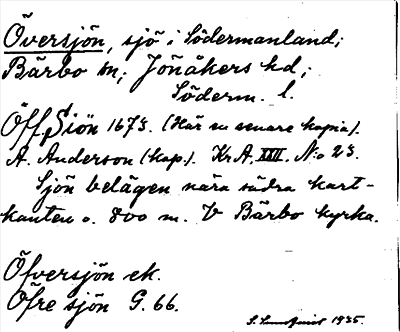 Översjön, sjö i Södermanland;
Bärbo sn; Jönåkers hd;
Söderm. l.
Öff Siön 1673. (Här en senare kopia).
A. Anderson (kop.). Kr A. XXII. N:o 23.
Sjön belägen nära södra kart-
kanten o. 800 m. V Bärbo kyrka.
Öfversjön ek.
Öfre sjön G. 66.
S. Lundquist 1935.